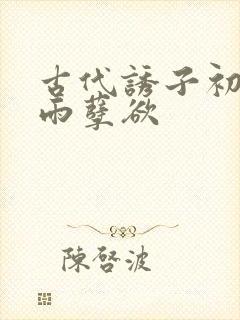 古代誘子初
雨孽欲
陳啓波